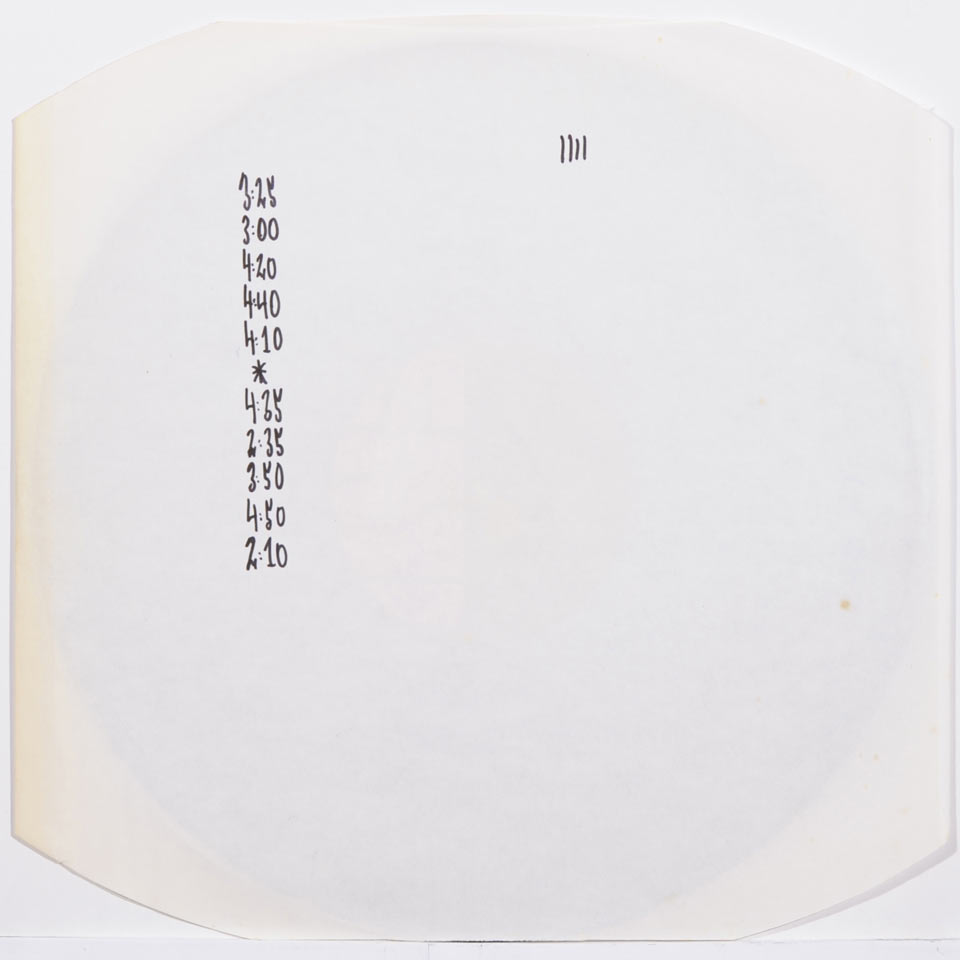 ||||
3:25
3:00
4:20
4:40
4:10
*
4:35
2:35
3:50
4:50
2:10